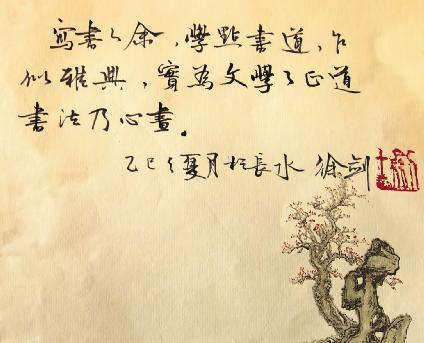 寫書之余，學點書道，乍
似雅典，實為文學之正道
書法乃心畫。
乙巳之夏月於長水 徐剑